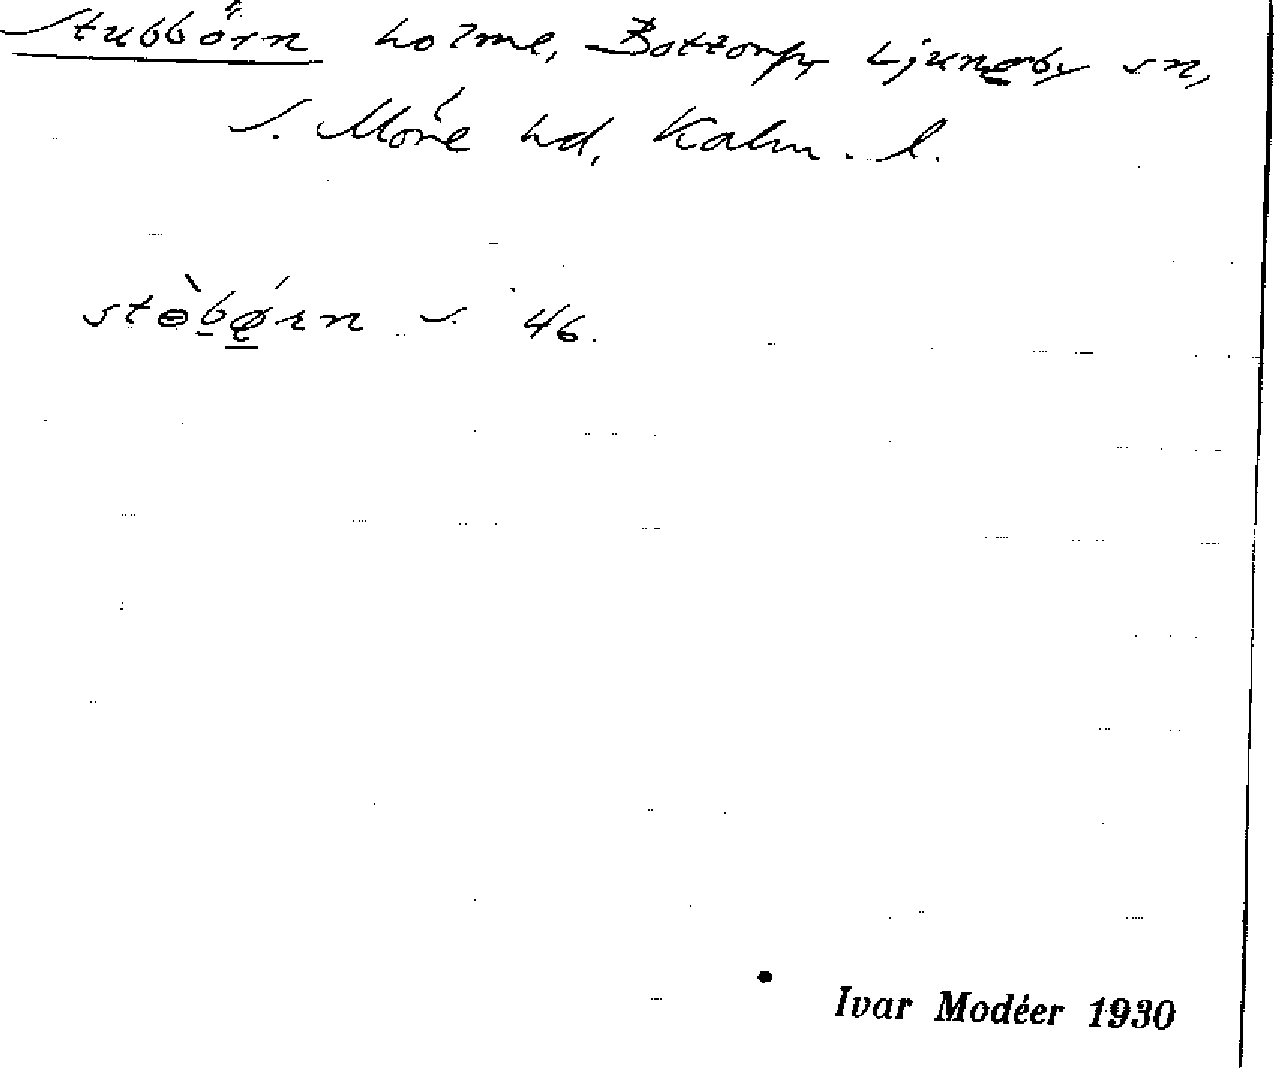 Stubbörn holme, Bottorp, Ljungby sn,
S. Möre hd, Kalm. l.
stɵ̀bǿrn s. 46.
Ivar Modéer 1930